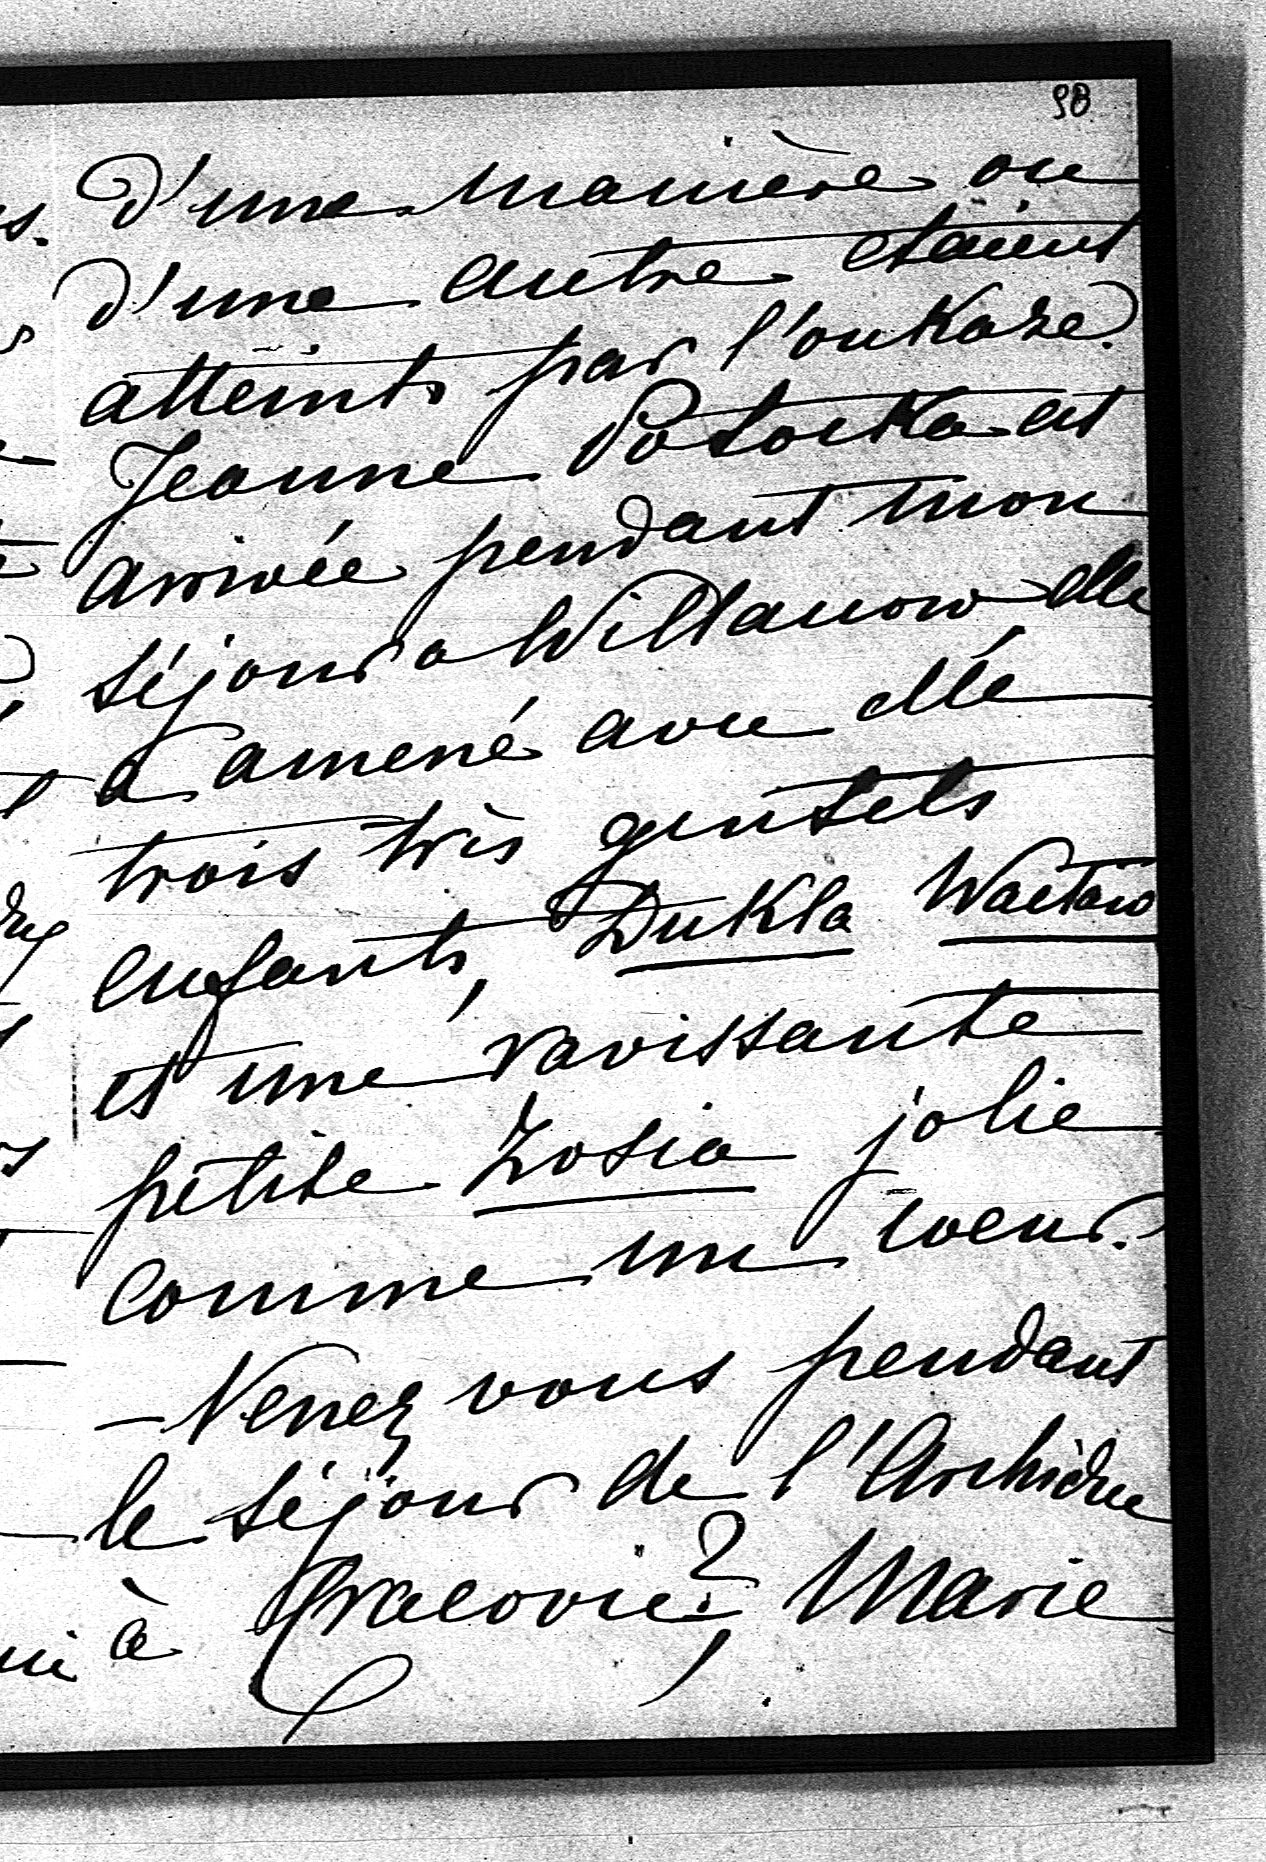 98
d'une manière ou
d'une autre étaient
atteints par l'oukaze.
Jeanne Potocka est
arrivée pendant mon
séjour a Willanow elle
a amené avec elle
trois très gentils
enfants, Dukla
et une ravissante
petite Zosia jolie
comme un coeur.
– Venez vous pendant
le séjour de l'Archiduc
à Cracovie? Marie